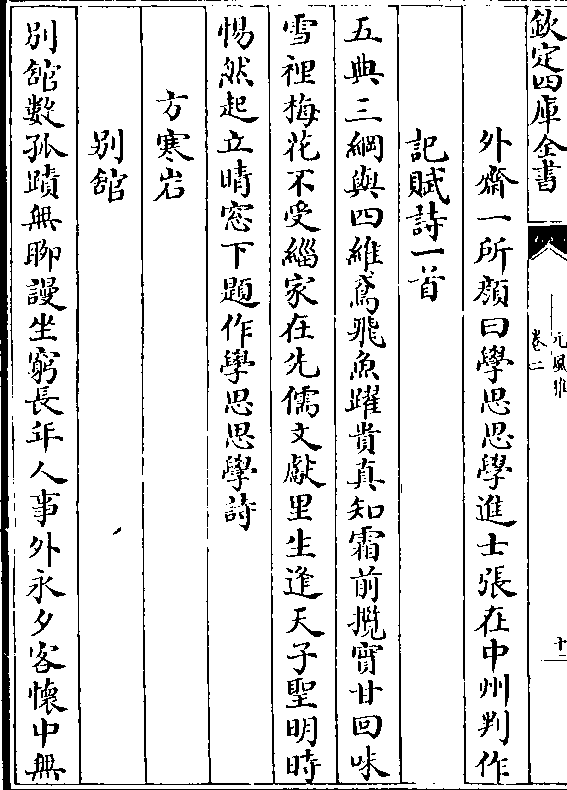 欽定四庫全書
元風雅
卷二
十二
外齋一所顔曰學思思學進士張在中州判作
記賦詩一首
五典三綱與四維鳶飛魚躍貴真知霜前攬實甘回味
雪裡梅花不受緇家在先儒文獻里生逢天子聖明時
惕然起立晴窓下題作學思思學詩
方寒岩
别舘
别舘數孤蹟無聊謾坐窮長年人事外永夕客懷中無